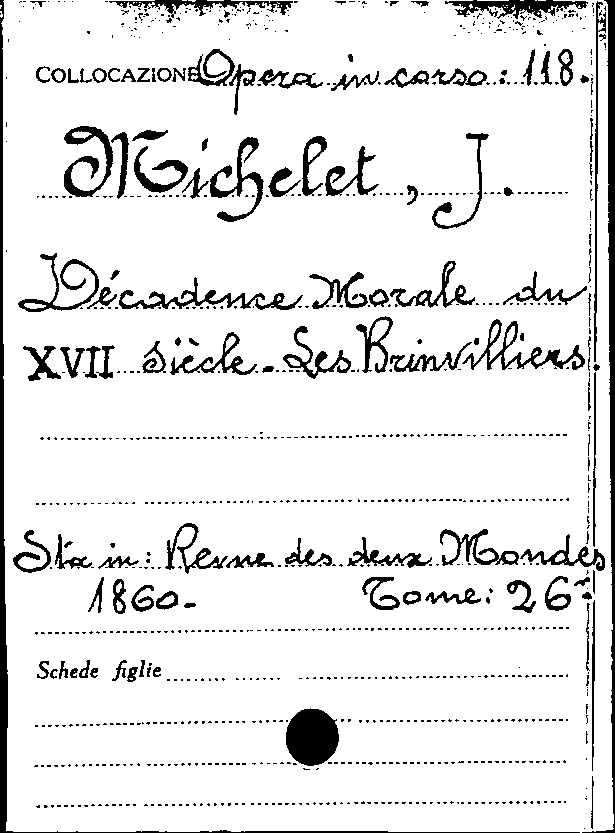 COLLOCAZIONE Opera in corso: 118.
Michelet, J.
Décadence Morale du
XVII siècle. Les Brinvilliers.
Sta in: Revue des deux Mondes
1860. Tome: 26º
Schede figlie